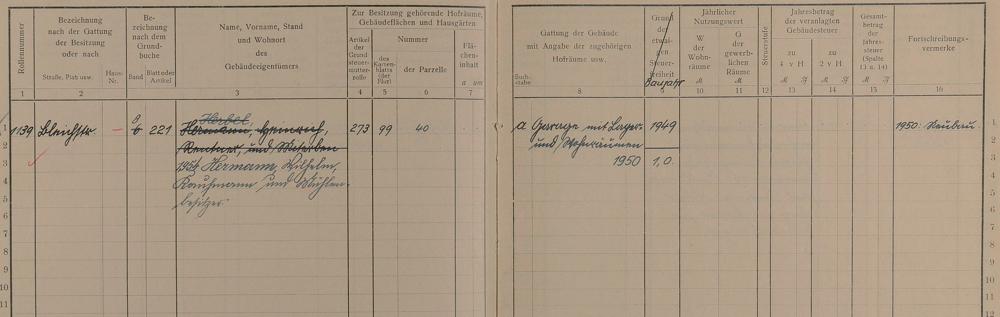 Rollennummer
Bezeichnung
nach der Gattung
der Besitzung
oder nach
Straße, Platz usw.
Haus-
Nr.
Be-
zeichnung
nach dem
Grund-
buche
Band
Blatt oder
Artikel
Name, Vorname, Stand
und Wohnort
des
Gebäudeeigentümers
Zur Besitzung gehörende Hofräume,
Gebäudeflächen und Hausgärten
Artikel
der
Grund
steuer-
mutter-
rolle
Nummer
des
Karten-
blatts
(der
Flur)
der Parzelle
Flä-
chen-
inhalt
a qm
1 2 3 4 5 6 7
1139 Bleichstr. — 6 221
Herbel,
Hermann, Heinrich,
Rentner, und Miterben
273 99 40
Hermann, Wilhelm,
Kaufmann und Mühlen-
besitzer.
2
3
4
5
6
7
8
9
10
11
Buch-
stabe
Gattung der Gebäude
mit Angabe der zugehörigen
Hofräume usw.
Grund
der
etwai-
gen
Steuer-
freiheit
Baujahr
Jährlicher
Nutzungswert
W
der
Wohn-
räume
M
G
der
gewerb-
lichen
Räume
M
Steuerstufe
Jahresbetrag
der veranlagten
Gebäudesteuer
zu
4 v H
M ₰
zu
2 v H.
M ₰
Gesamt-
betrag
der
Jahres-
steuer
(Spalte
13 u. 14)
M ₰
Fortschreibungs-
vermerke
8 9 10 11 12 13 14 15 16
a Garage mit Lager-
und Wohnräumen
1949
1950 1,0.
1950: Neubau.
1
2
3
4
5
6
7
8
9
10
11
12